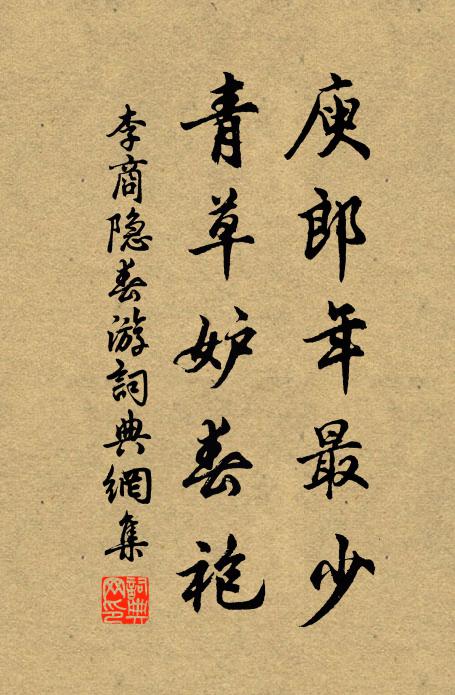 庾郎年最少
青草妒春袍
李商隐春游詞典網集
詞典网印